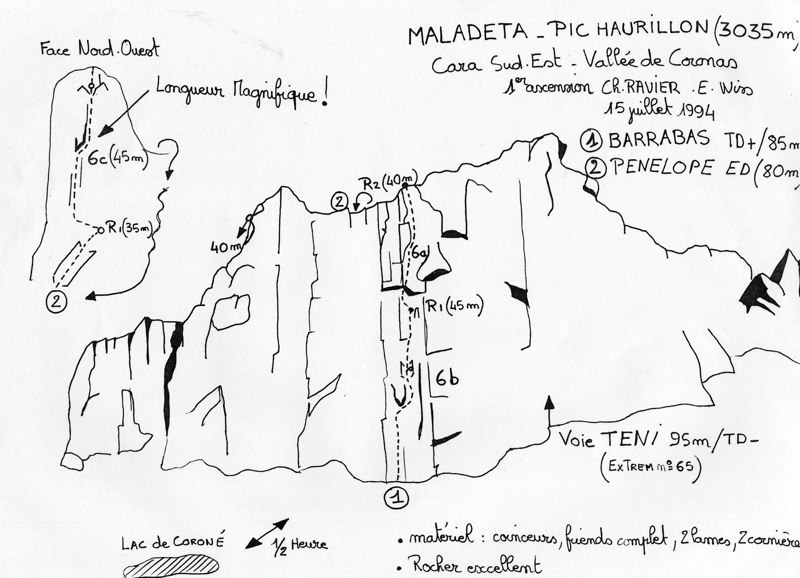 MALADETA - PIC HAURILLON (3035 m)
Cara Sud.Est - Vallée de Coronas
1ère ascension Ch. RAVIER . E. Wiss
15 juillet 1994
① BARRABAS TD+/85m
② PENELOPE ED (80m
Face Nord-Ouest
Longueur Magnifique !
6c (45m)
R1 (35m)
②
40m
②
R2 (40m)
6a
R1 (45m)
6b
①
Voie TENI 95m/TD-
(EXTREM nº 65)
LAC de CORONÉ
1/2 HEURE
• matériel : coinceurs, friends complet, 2 lames, 2 cornière
• Rocher excellent